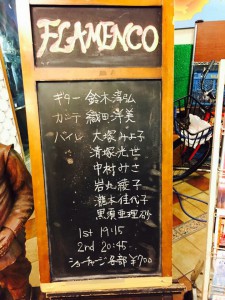 FLAMENCO
ギター 鈴木淳弘
カンテ 織田洋美
バイレ 大塚みよ子
清塚光世
中村みさ
岩丸綾子
瀧本佳代子
黒須亜理砂
1st 19:15
2nd 20:45
ショーチャージ各部¥700